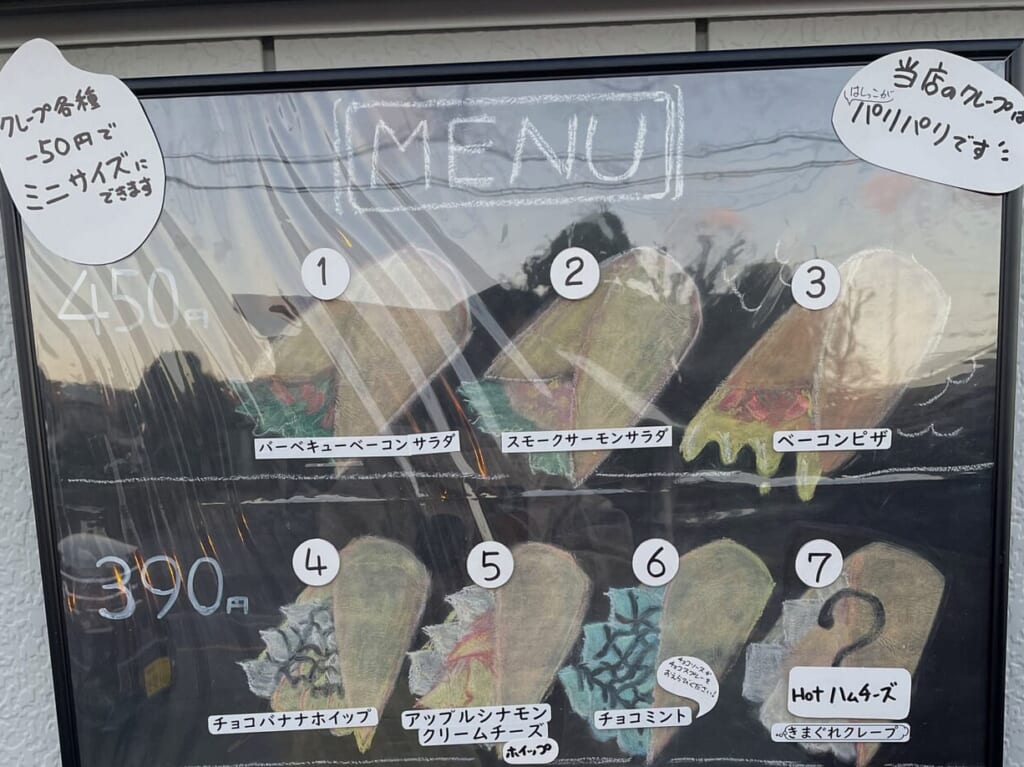 クレープ各種
-50円で
ミニサイズに
できます
MENU
当店のクレープは
はしっこが
パリパリです
450円
1
2
3
バーベキューベーコンサラダ
スモークサーモンサラダ
ベーコンピザ
390円
4
5
6
7
チョコバナナホイップ
アップルシナモン
クリームチーズ
ホイップ
チョコミント
チョコソースか
チョコスプレーを
おえらびください!
?
Hot ハムチーズ
きまぐれクレープ